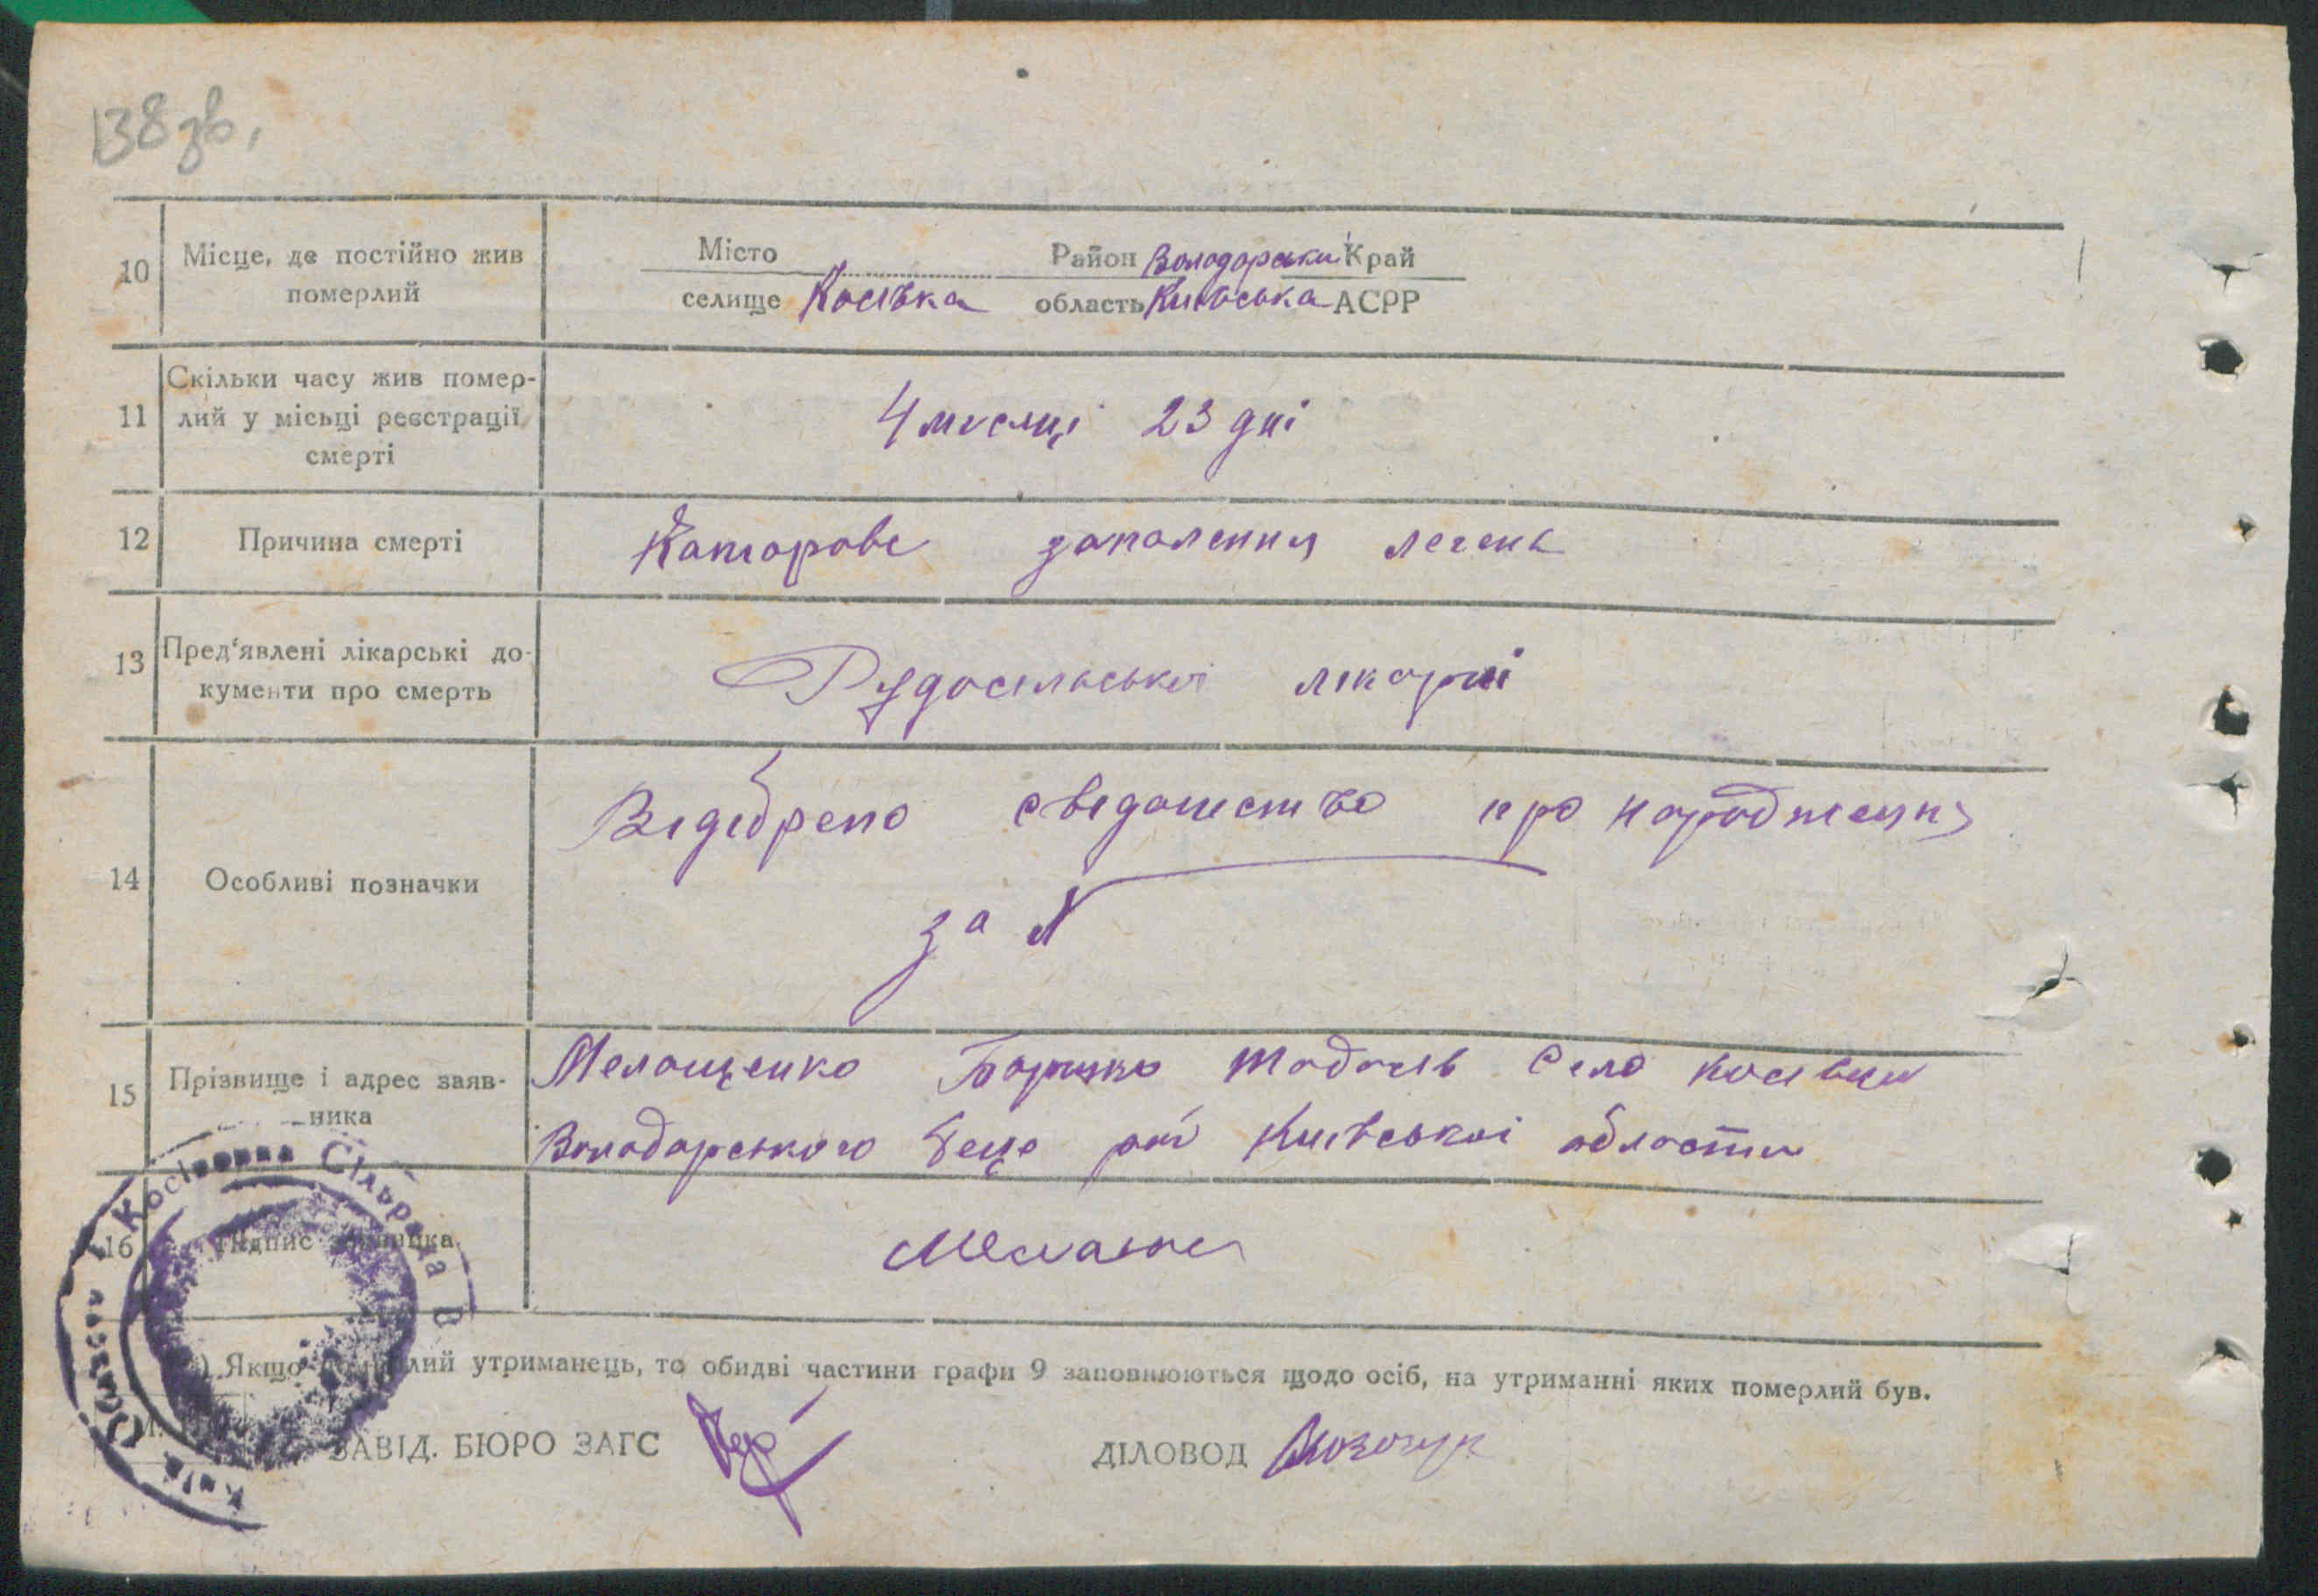 138 зв.
10 Місце, де постійно жив померлий
Місто Район Володорський Край
селище Косівка область Київська АСРР
11 Скільки часу жив помер-
лий у місьці реєстрації
смерті
4 місяці 23 дні
12 Причина смерті
Каторове запалення легень
13 Пред'явлені лікарські до-
кументи про смерть
Рудосельської лікарні
14 Особливі позначки
Відібрено свідоцтво про народження
за №
15 Прізвище і адрес заяв-
ника
Мелащенко село Косівки
Володарського рай Київської области
16 Підпис заявника
Косівська Сільрада В
Київ. Области
*) Якщо померлий утриманець, то обидві частини графи 9 заповнюються щодо осіб, на утриманні яких померлий був.
ЗАВІД. БЮРО ЗАГС
ДІЛОВОД